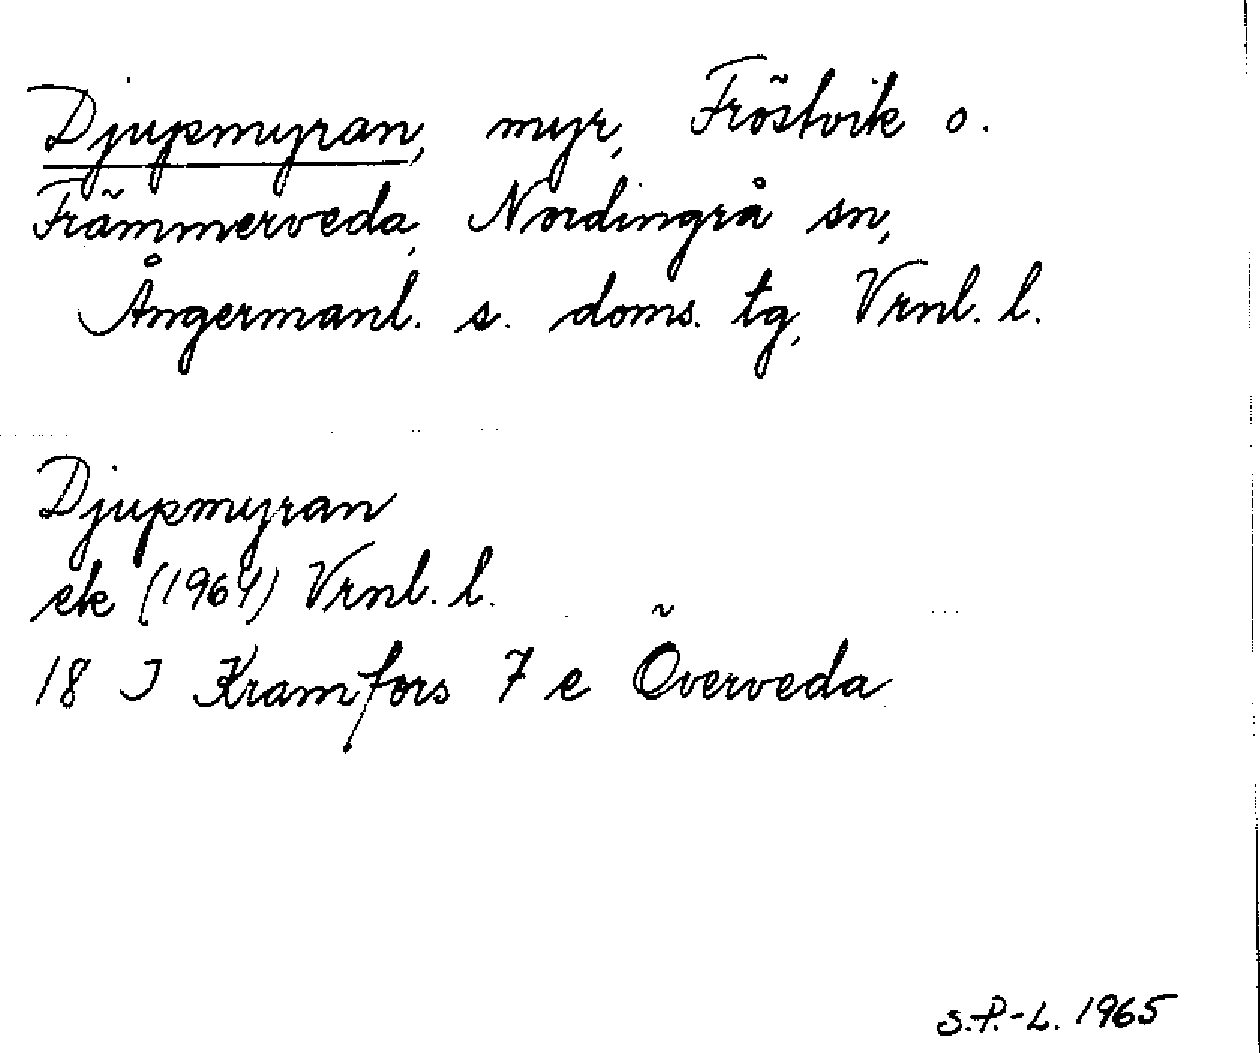 Djupmyran, myr, Fröstvik o.
Främmerveda, Nordingrå sn,
Ångermanl. s. doms. tg, Vrnl. l.
Djupmyran
ek (1964) Vrnl. l.
18 J Kramfors 7 e Överveda
S.P.-L. 1965